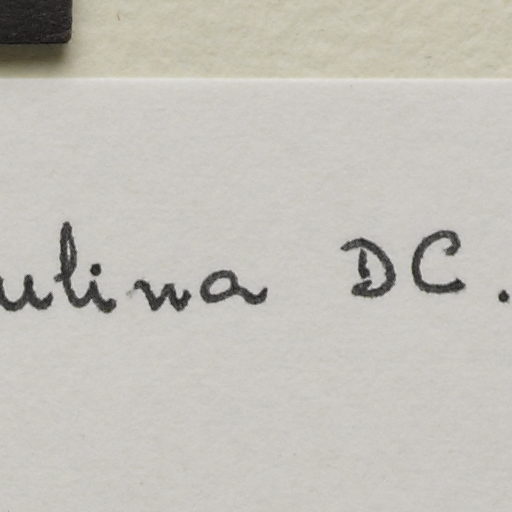 ulina DC.